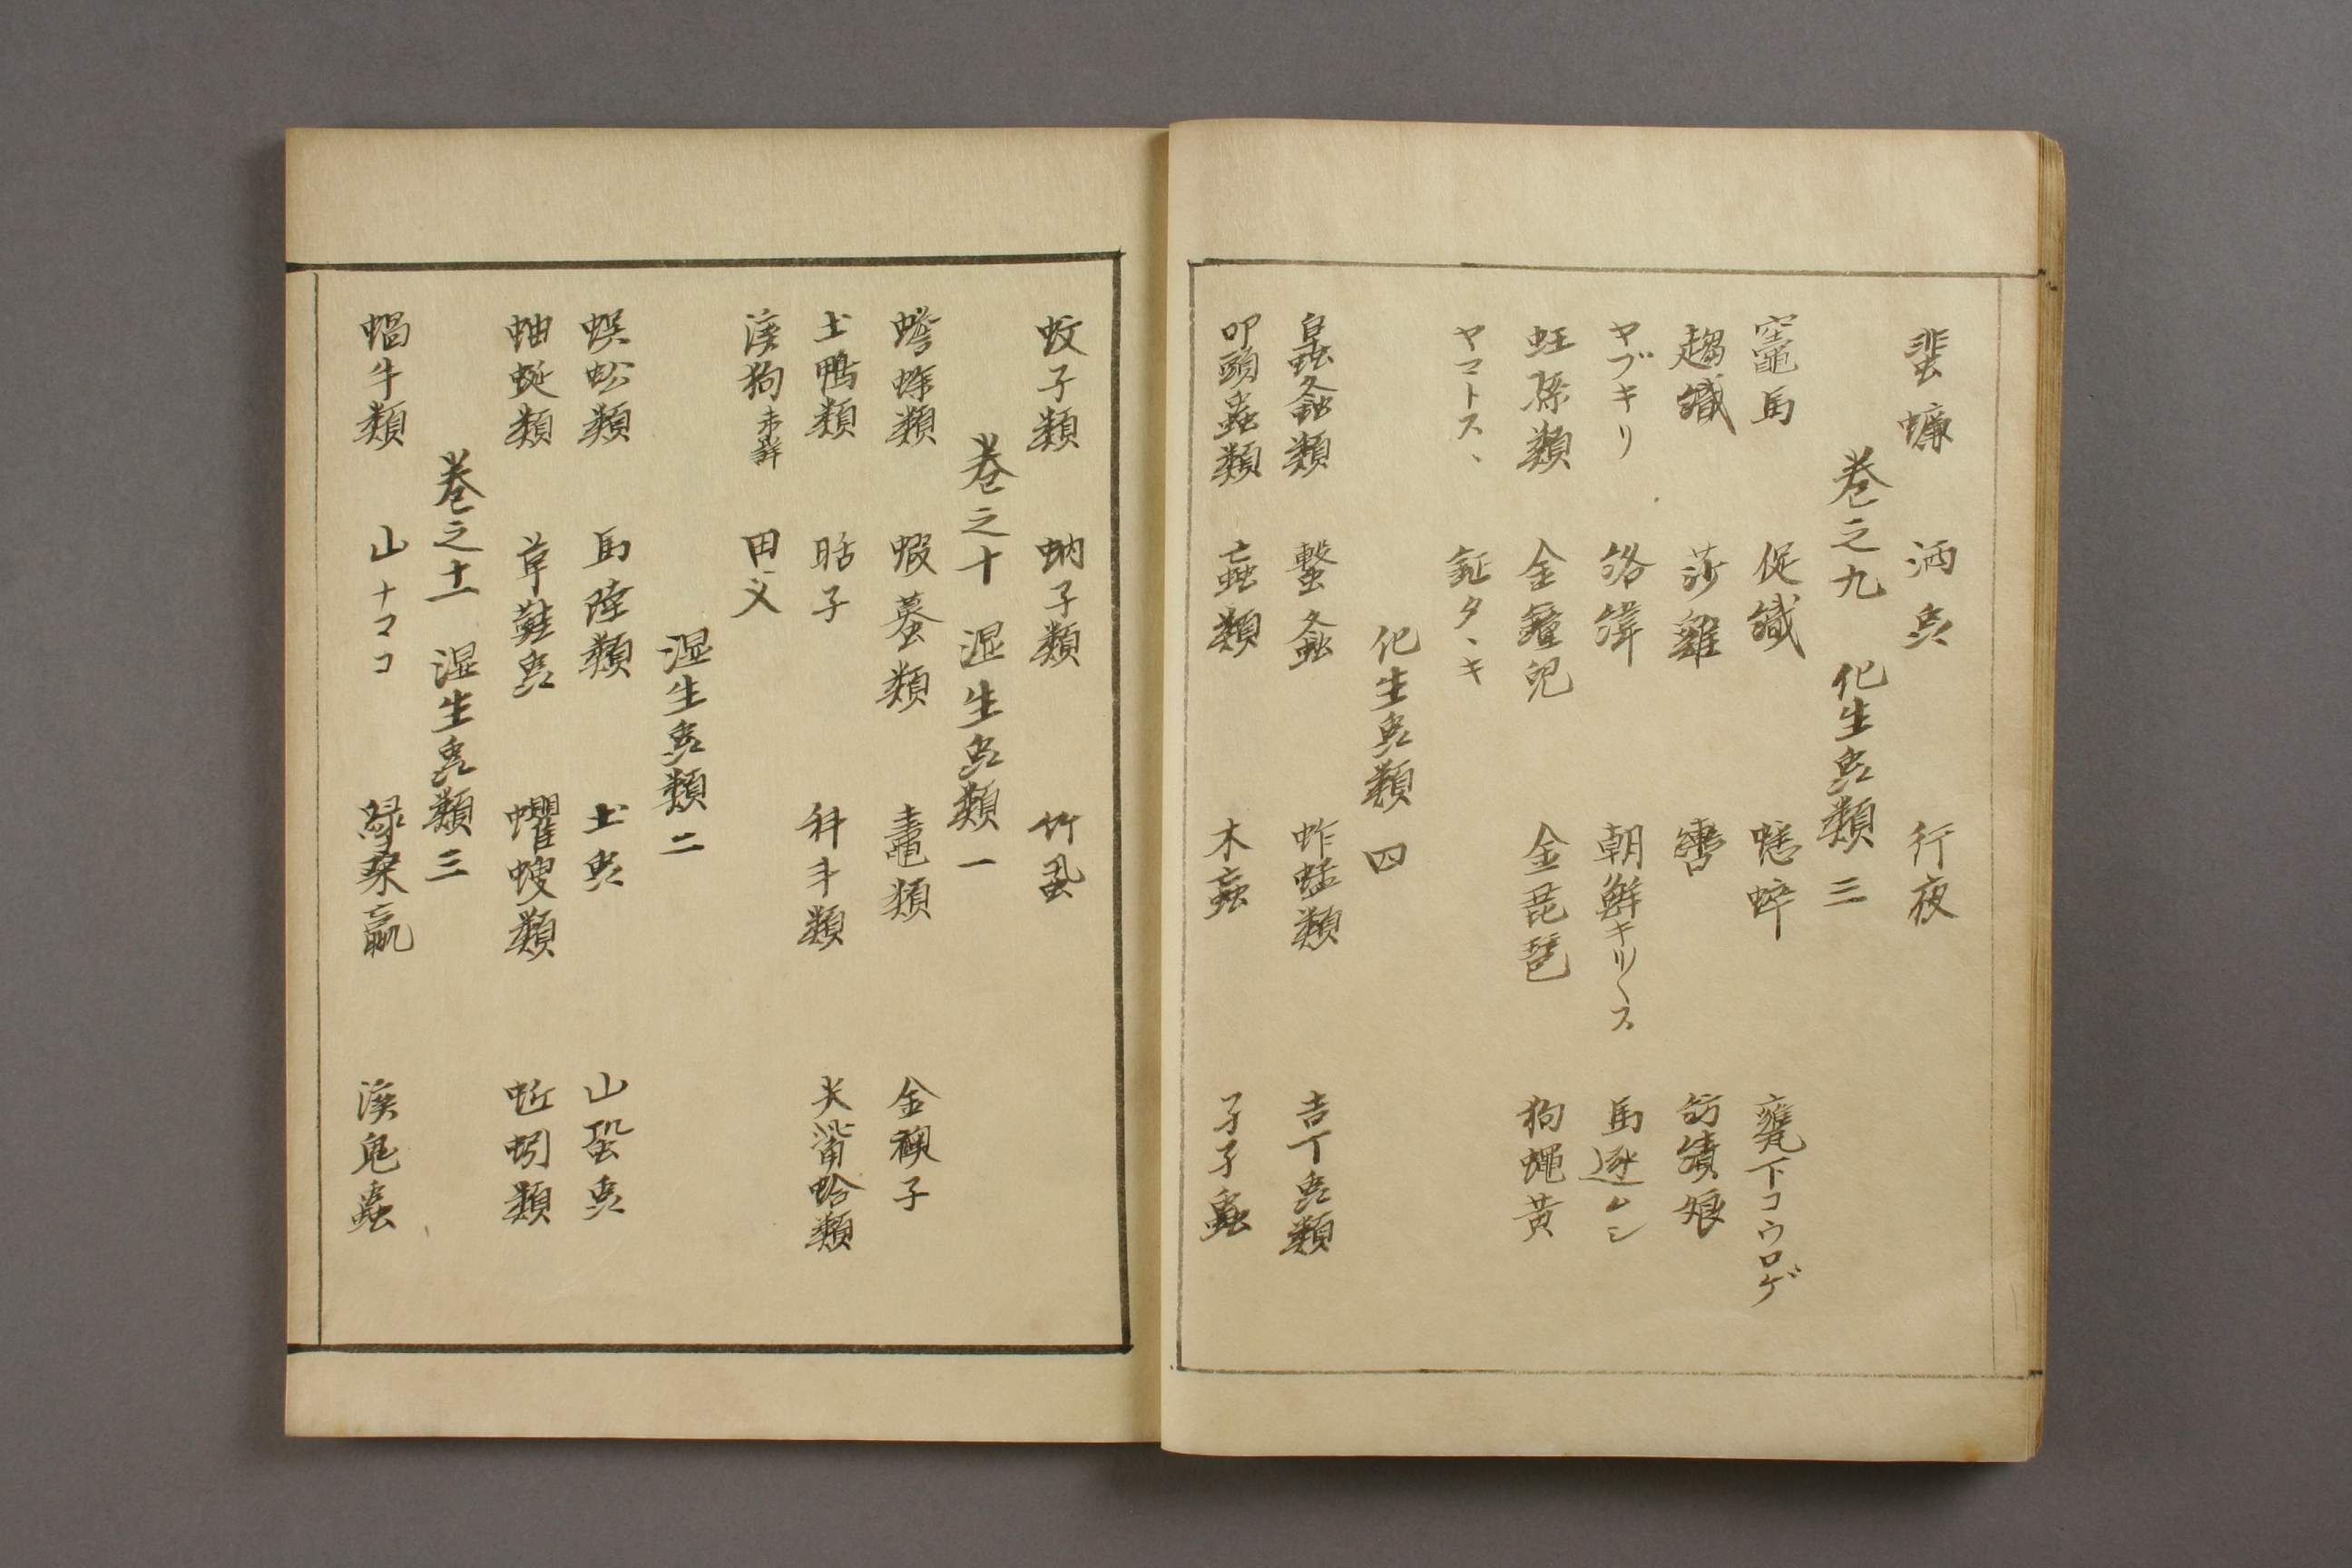 蜚蠊 洒虫 行夜
巻之九 化生虫類 三
竈馬 促織 蟋蟀 甕下コウロゲ
趨織 莎雞 轡 紡績娘
ヤブキリ 絡緯 朝鮮キリ〱ス 馬逐ムシ
蚟孫類 金鐘児 金琵琶 狗蠅黄
ヤマトスヽ 鉦タヽキ
化生虫類 四
蝗螽類 螿螽 蚱蜢類 吉丁虫類
叩頭蟲類 蝱類 木蝱 孑孑蟲
蚊子類 蚋子類 竹虱
巻之十 湿生虫類 一
蟾蜍類 蝦蟇類 鼃類 金襖子
土鴨類 蛞子 科斗類 尖㴙蛤類
溪狗未詳 田父
湿生虫類 二
蜈蚣類 馬陸類 土虫 山蛩虫
蚰蜒類 草鞋虫 蠷螋類 蚯蚓類
巻之十一 湿生虫類 三
蝸牛類 山ナマコ 緑桑蠃 溪鬼蟲